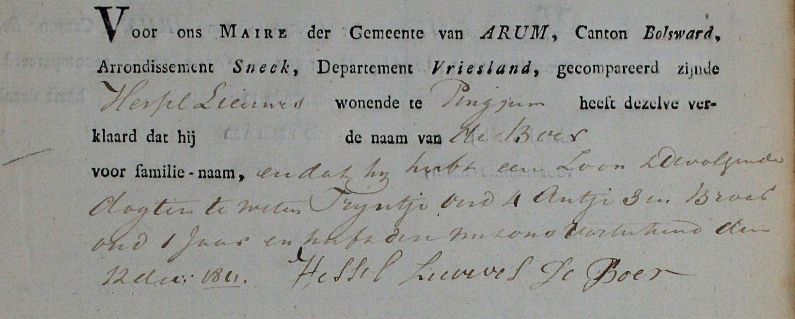 Voor ons MAIRE der Gemeente van ARUM, Canton Bolsward,
Arrondissement Sneek, Departement Vriesland, gecompareerd zijnde
Hessel Lieuwes wonende te Pingjum heeft dezelve ver-
klaard dat hij de naam van de Boer
voor familie-naam, en dat hy heeft een Zoon & de volgende
dogters te weten Tryntje oud 4 Antje 3 en Broer
oud 1 Jaar en heeft deze met ons vertekend den
12 dec: 1811. Hessel Lieuwes de Boer